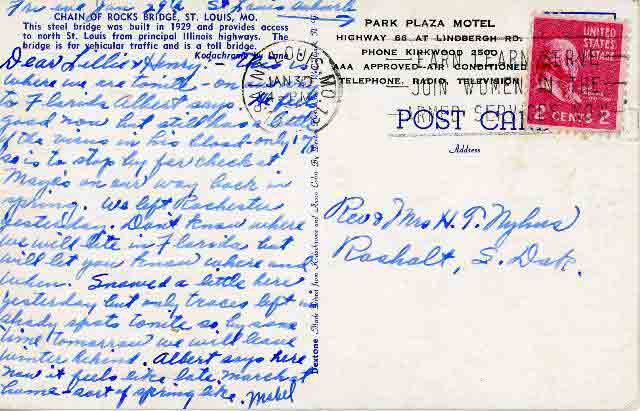 Tues. eve Jan 29th St Louis suburb
CHAIN OF ROCKS BRIDGE, ST. LOUIS, MO.
This steel bridge was built in 1929 and provides access
to north St. Louis from principal Illinois highways. The
bridge is for vehicular traffic and is a toll bridge.
Kodachrome by Lane
Dear Lillie & Henry: -
where we are tonite - on
to Florida. Albert says he feels
good now but still has
of the virus in his blood - only 17%
so is to stop by for check at
Mayo's on our way back in
spring. We left Rochester
yesterday. Don't know where
we will lite in Florida but
will let you know where and
when. Snowed a little here
yesterday but only traces left in
shady spots tonite so by some
time tomorrow we will leave
winter behind. Albert says here
now it feels like late March at
home - sort of spring like. Mabel
PARK PLAZA MOTEL
HIGHWAY 66 AT LINDBERGH RD.
PHONE KIRKWOOD 2500
AAA APPROVED AIR CONDITIONED
TELEPHONE, RADIO, TELEVISION
JAN 30
MO.
EARN LEARN SERVE
JOIN WOMEN IN THE
ARMED SERVICES
UNITED
STATES
POSTAGE
2 CENTS 2
POST CARD
Address
Rev & Mrs H. T. Nyhus
Rosholt, S. Dak.
Dextone Made Direct from Kodachrome and Ansco Color By